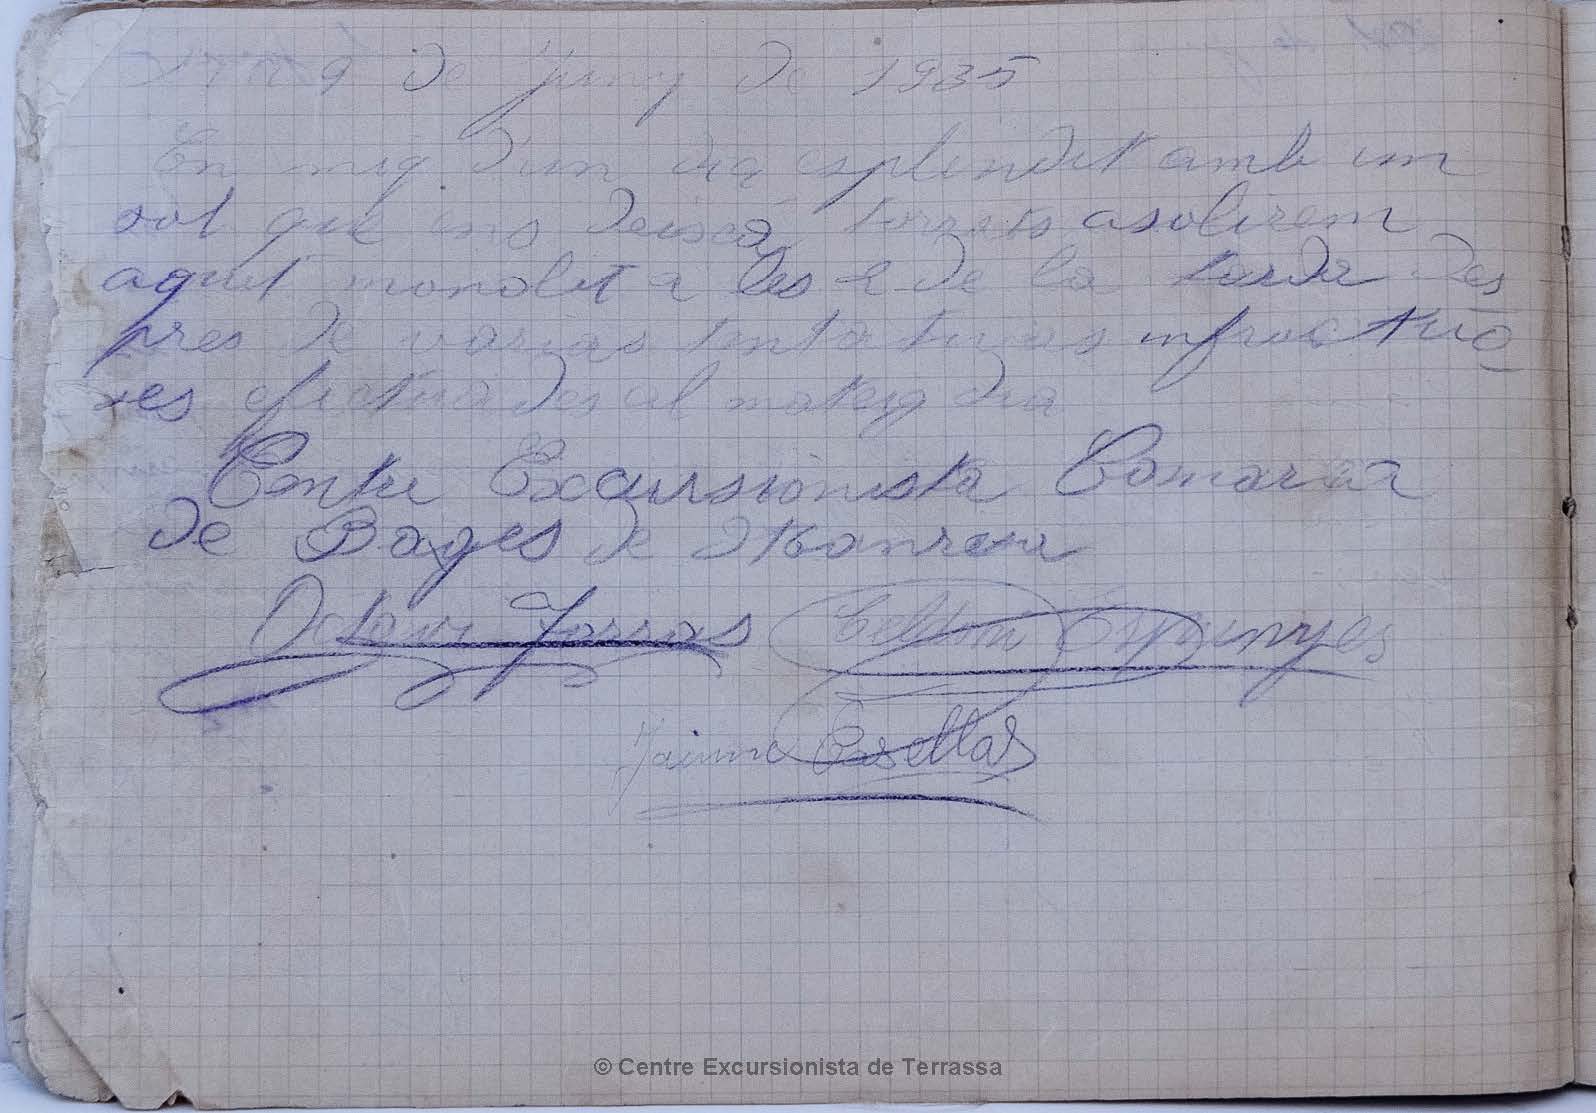 9 de juny de 1935
En mig d'un dia esplendit amb un
sol que ens deixà torrats asolirem
aquet monolit a les 2 de la tarda des
pres de varias tentativas infructuo
res efectuades al mateig dia
Centre Excursionista Comarca
de Bages de Manresa
Octavi Torras Espunyes
Jaume Casellas
© Centre Excursionista de Terrassa